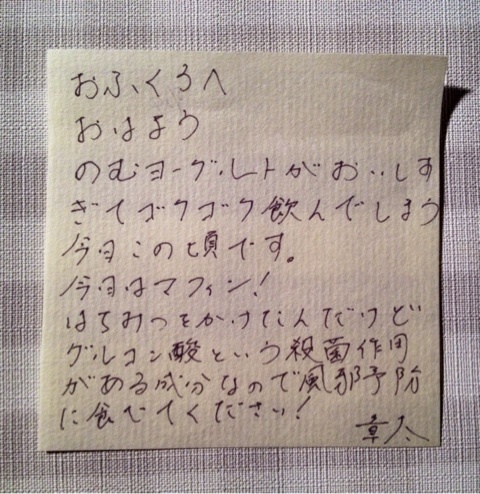 おふくろへ
おはよう
のむヨーグルトがおいしす
ぎてゴクゴク飲んでしまう
今日この頃です。
今日はマフィン!
はちみつをかけたんだけど
グルコン酸という殺菌作用
がある成分なので風邪予防
に食べてください!
章太